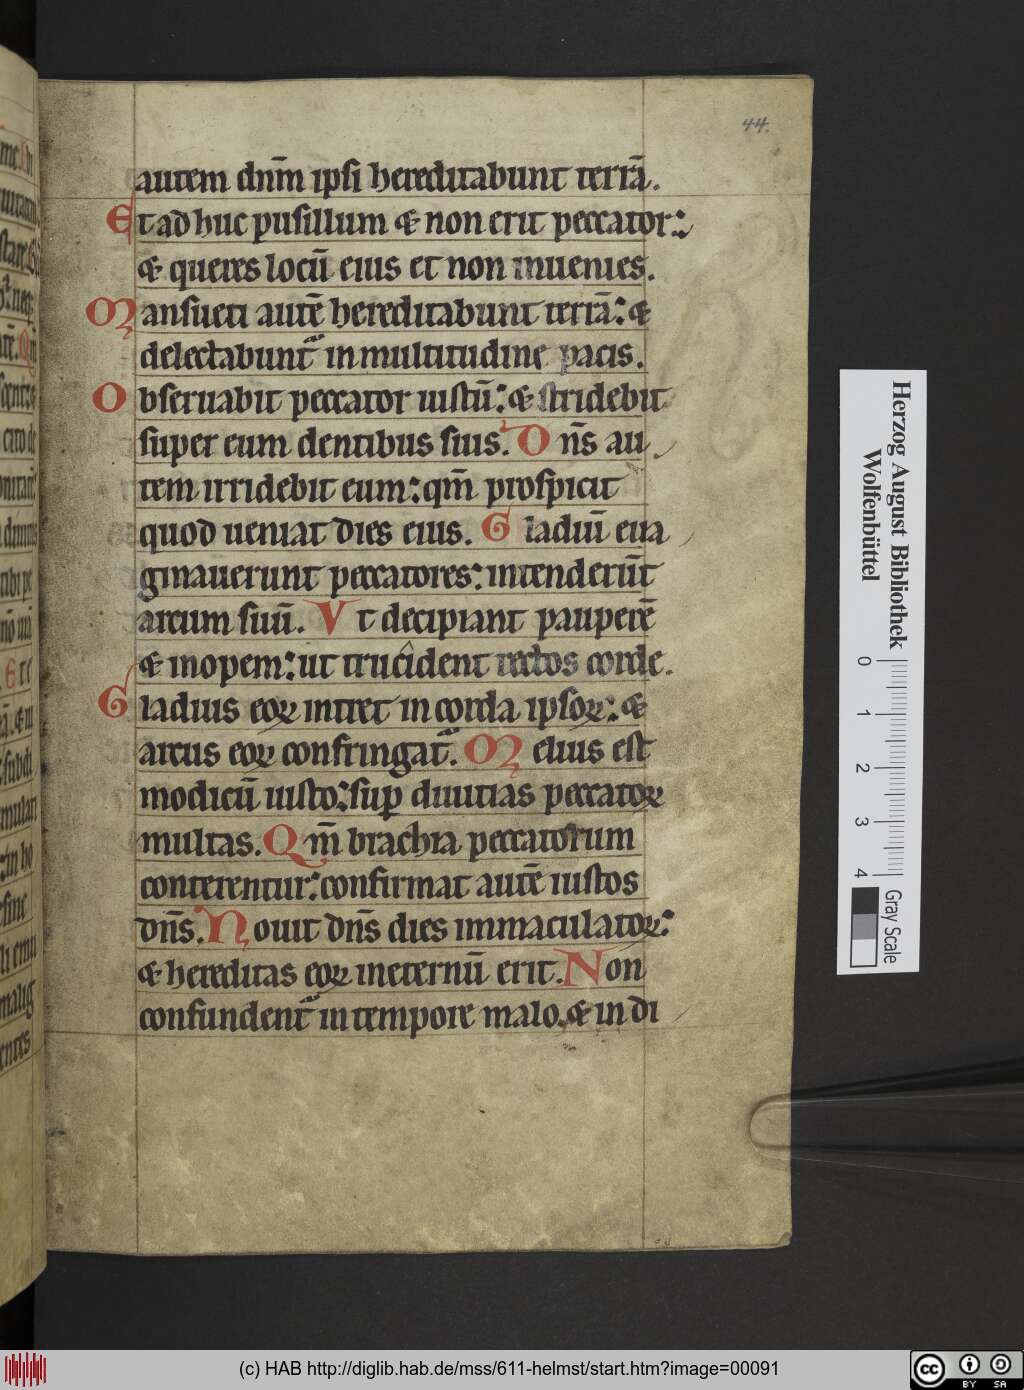 44.
autem dnm̄ ipsi hereditabunt terrā.
Et adhuc pusillum & non erit peccator:
& queres locū eius et non inuenies.
Mansueti autē hereditabunt terrā: &
delectabunt᷒ in multitudine pacis.
Obseruabit peccator iustū: & stridebit
super eum dentibus suis. Dn̄s au
tem irridebit eum: qm̄ prospicit
quod ueniat dies eius. Gladiū eua
ginauerunt peccatores: intenderūt
arcum suū. Vt decipiant pauperē
& inopem: ut trucident rectos corde.
Gladius eoꝝ intret in corda ipsoꝝ: &
arcus eoꝝ confringat᷒. Melius est
modicū iusto: sup̱ diuitias peccatoꝝ
multas. Qm̄ brachia peccatorum
conterentur: confirmat autē iustos
dn̄s. Nouit dn̄s dies immaculatoꝝ:
& hereditas eoꝝ ineternū erit. Non
confundent᷒ in tempore malo. & in di
Herzog August Bibliothek
Wolfenbüttel
0 1 2 3 4
Gray Scale
(c) HAB http://diglib.hab.de/mss/611-helmst/start.htm?image=00091
cc BY SA